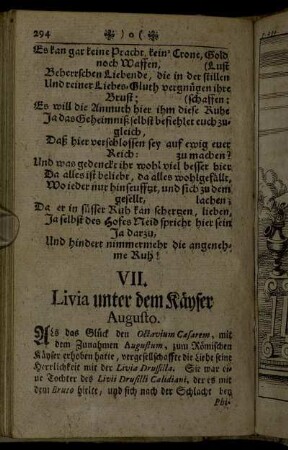 294 o
Es kan gar keine Pracht, kein' Crone, Gold
noch Waffen, (Lust
Beherrschen Liebende, die in der stillen
Und reiner Liebes-Gluth vergnügen ihre
Brust; (schaffen;
Es will die Anmuth hier ihm diese Ruhe
Ja das Geheimniß selbst befiehlet euch zu-
gleich,
Daß hier verschlossen sey auf ewig euer
Reich: zu machen?
Und was gedenckt ihr wohl viel besser hier
Da alles ist beliebt, da alles wohlgefällt,
Wo jeder nur hinseuffzt, und sich zu dem
gesellt, lachen;
Da er in süsser Ruh kan schertzen, lieben,
Ja selbst des Hofes Neid spricht hier sein
Ja darzu,
Und hindert nimmermehr die angeneh-
me Ruh!
VII.
Livia unter dem Käyser
Augusto.
Als das Glück den Octavium Cæsarem, mit
dem Zunahmen Augustum, zum Römischen
Käyser erhoben hatte, vergesellschaffte die Liebe seine
Herrlichkeit mit der Livia Drusilla. Sie war ei-
ne Tochter des Livii Drusilli Calidiani, der es mit
dem Bruto hielte, und sich nach der Schlacht bey
Phi-